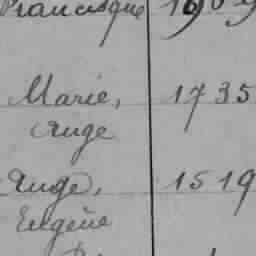 Francisque 1909
Marie, 1735
Ange
Ange, 1519
Eugène